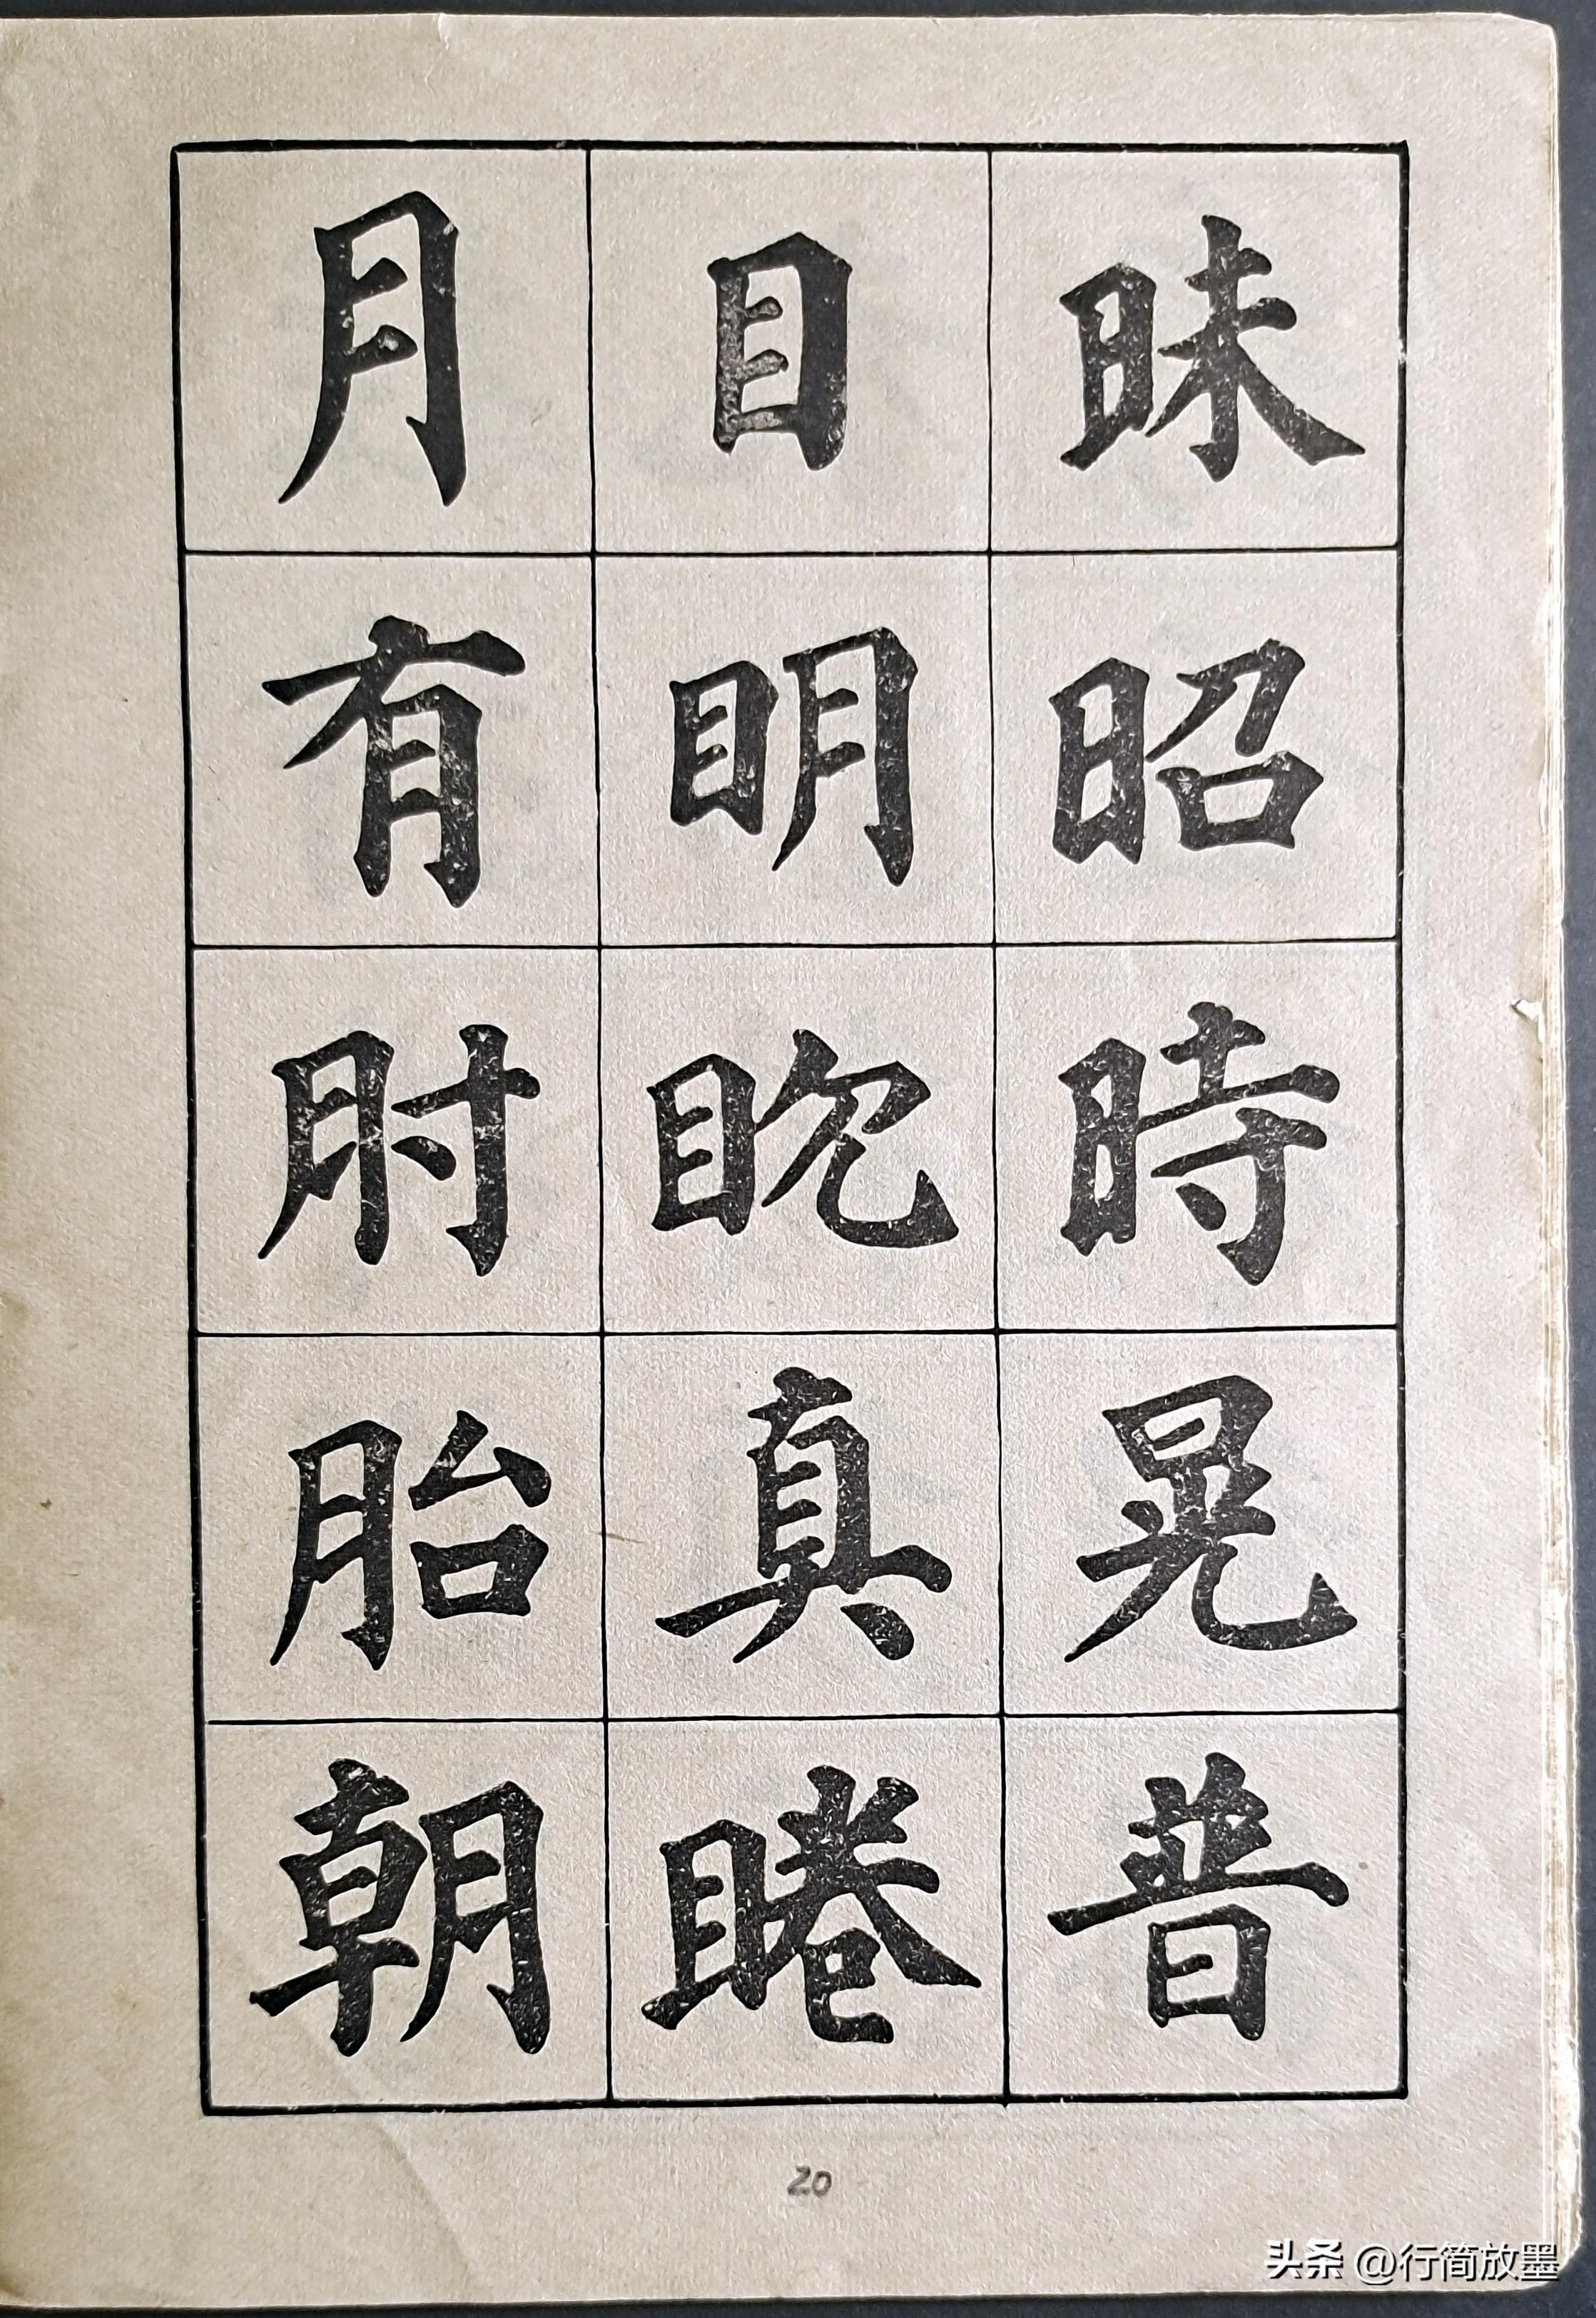 昧昭時晃普
目眀眈真睠
月有肘胎朝
20
头条 @行简放墨